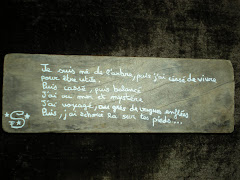 Je suis né de l'arbre, puis j'ai cessé de vivre
pour être utile.
Puis cassé, puis balancé
J'ai vu mon et mystère
J'ai voyagé, au gré de vagues enflées
Puis, j'ai échoué là sur tes pieds....